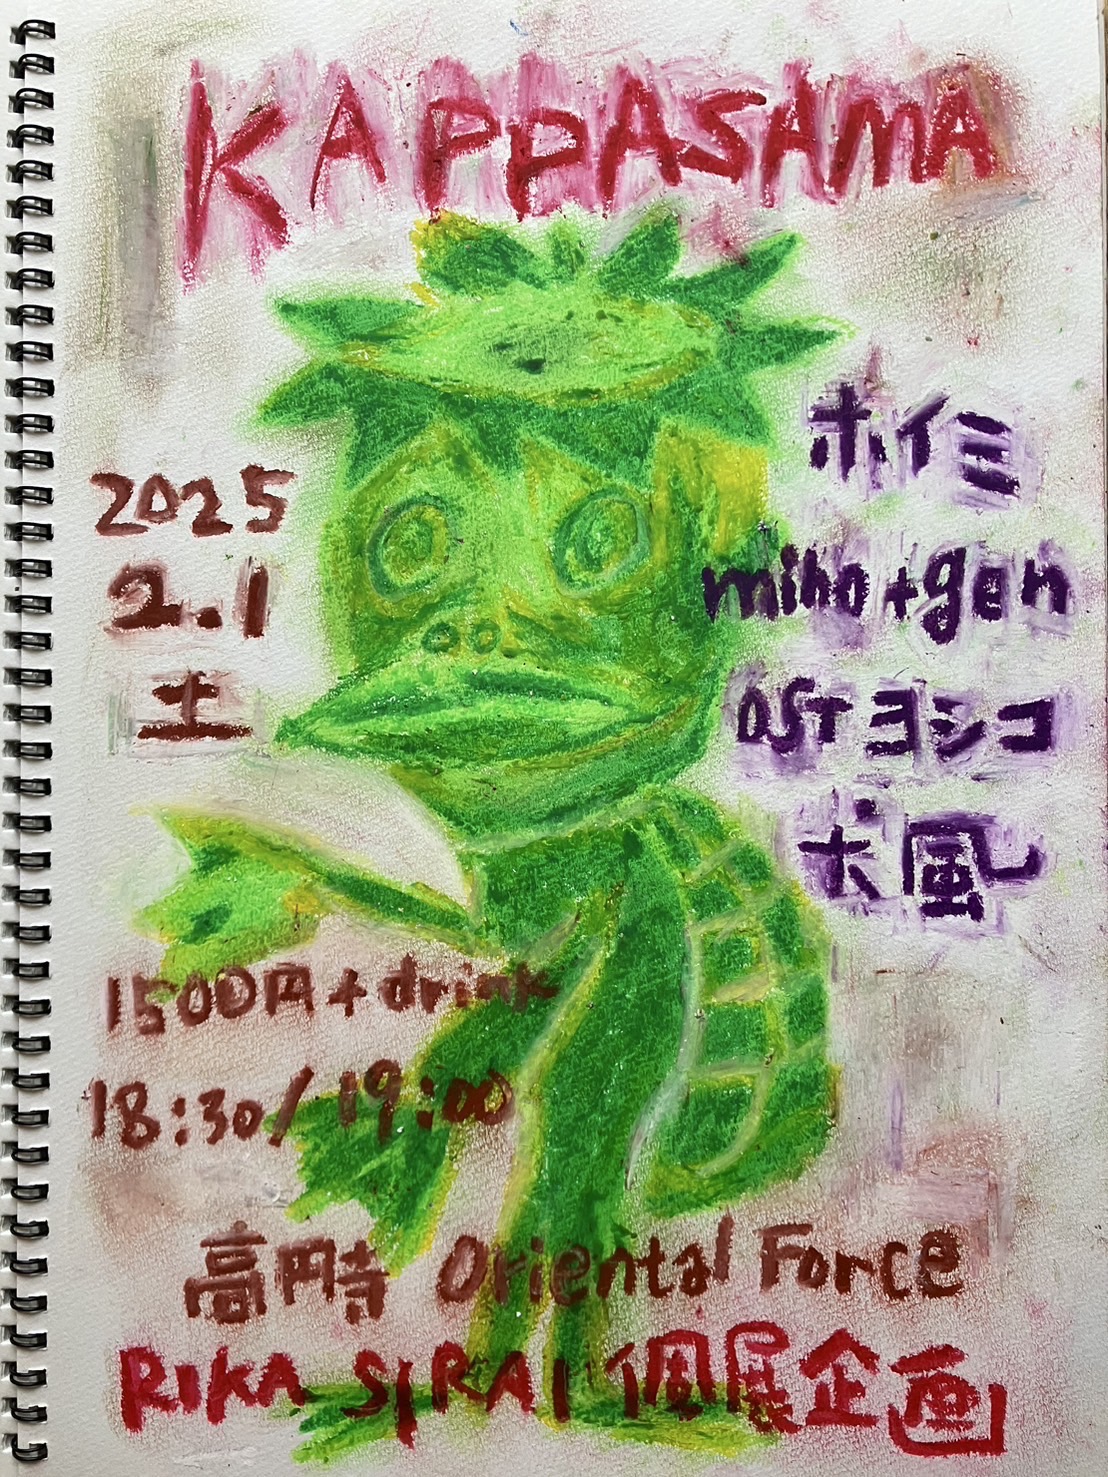 KAPPASAMA
2025
2.1
土
ホイミ
miho+gen
OST ヨシコ
犬風
1500円+drink
18:30/19:00
高円寺 Oriental Force
RIKA SIRAI 個展企画